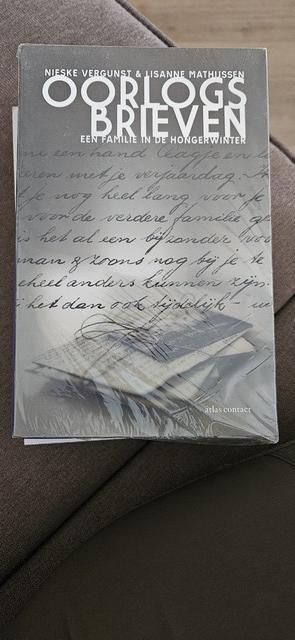 NIESKE VERGUNST & LISANNE MATHIJSSEN
OORLOGS
BRIEVEN
EEN FAMILIE IN DE HONGERWINTER
een hand
met je verjaardag.
je nog heel lang voor je
voor de verdere familie
is het al een bijzonder
man & zoons nog bij je
heel anders kunnen zijn.
het dan ook tijdelijk -
atlas contact